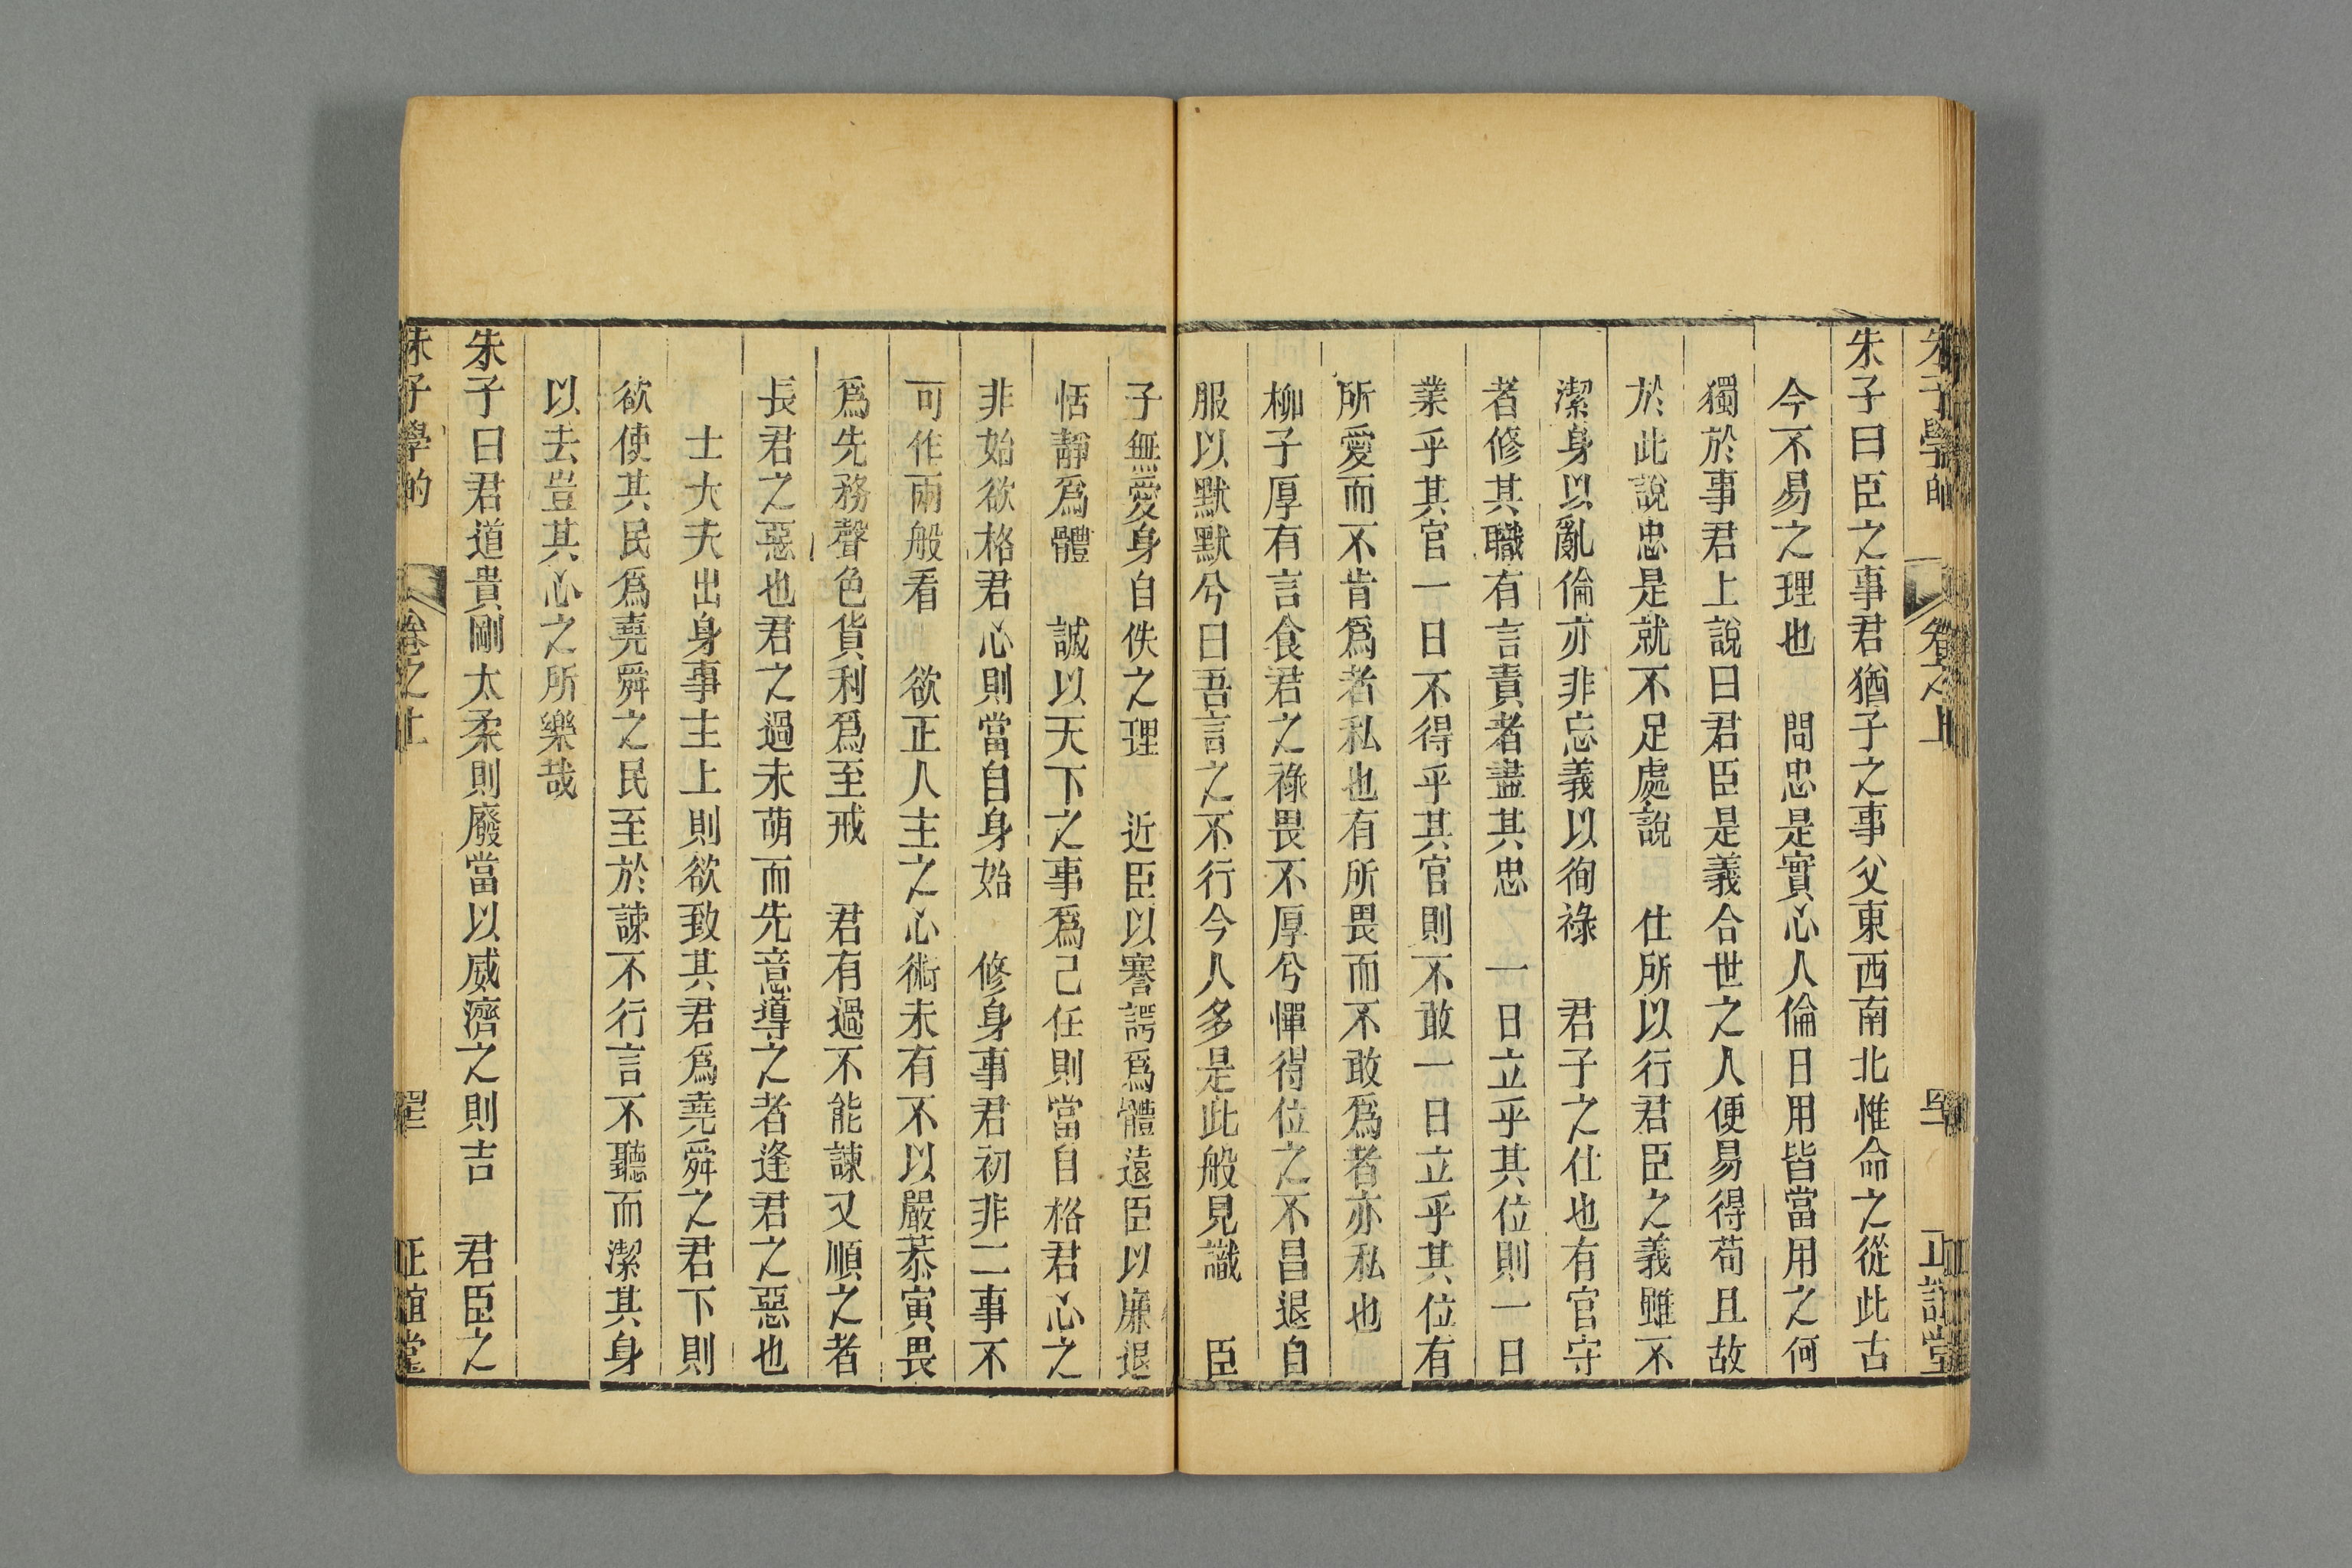 朱子學的 卷之上 正誼堂
朱子曰臣之事君猶子之事父東西南北惟命之從此古
今不易之理也 問忠是實心人倫日用皆當用之何
獨於事君上說曰君臣是義合世之人便易得苟且故
於此說忠是就不足處說 仕所以行君臣之義雖不
潔身以亂倫亦非忘義以徇祿 君子之仕也有官守
者修其職有言責者盡其忠 一日立乎其位則一日
業乎其官一日不得乎其官則不敢一日立乎其位有
所愛而不肯為者私也有所畏而不敢為者亦私也
柳子厚有言食君之祿畏不厚兮憚得位之不昌退自
服以默默兮曰吾言之不行今人多是此般見識 臣
子無愛身自佚之理 近臣以謇諤為體遠臣以廉退
恬靜為體 誠以天下之事為己任則當自格君心之
非始欲格君心則當自身始 修身事君初非二事不
可作兩般看 欲正人主之心術未有不以嚴恭寅畏
為先務聲色貨利為至戒 君有過不能諫又順之者
長君之惡也君之過未萌而先意導之者逢君之惡也
士大夫出身事主上則欲致其君為堯舜之君下則
欲使其民為堯舜之民至於諫不行言不聽而潔其身
以去豈其心之所樂哉
朱子曰君道貴剛太柔則廢當以威濟之則吉 君臣之
朱子學的 卷之上 正誼堂